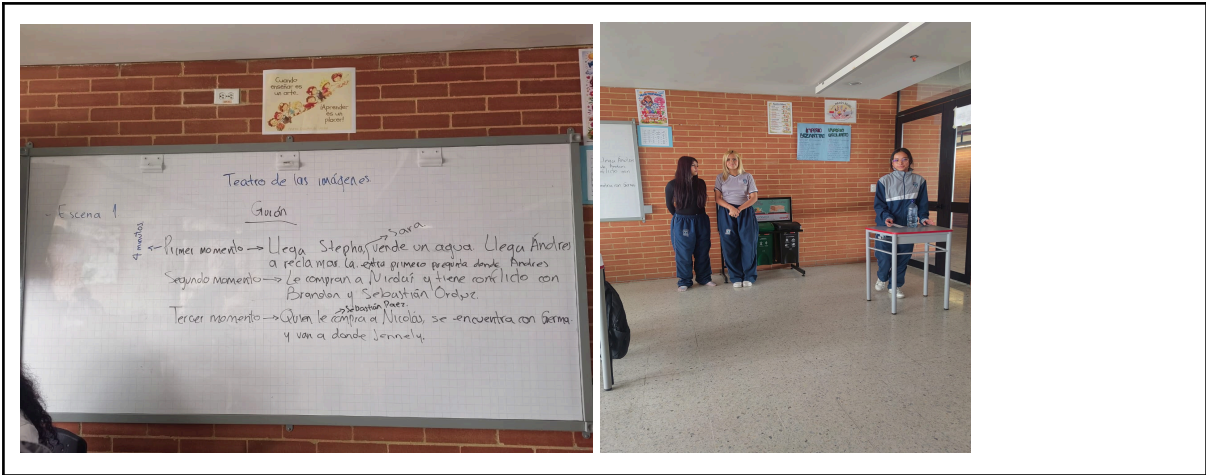 Cuando
enseñar es
un arte.
¡Aprender
es un
placer!
Teatro de las imágenes
Escena 1
Guión
4 minutos
Sara
Primer momento → Llega Stepha, vende un agua. Llega Ándres
a reclamar la. entra primero pregunta donde Andres
Segundo momento → Le compran a y tiene conflicto con
Brandon y Sebastián Orduz.
Sebastián Paez.
Tercer momento → Quien le compra a Nicolás, se encuentra con Germa
y van a donde Jennely.
IMPERIO
BIZANTINO